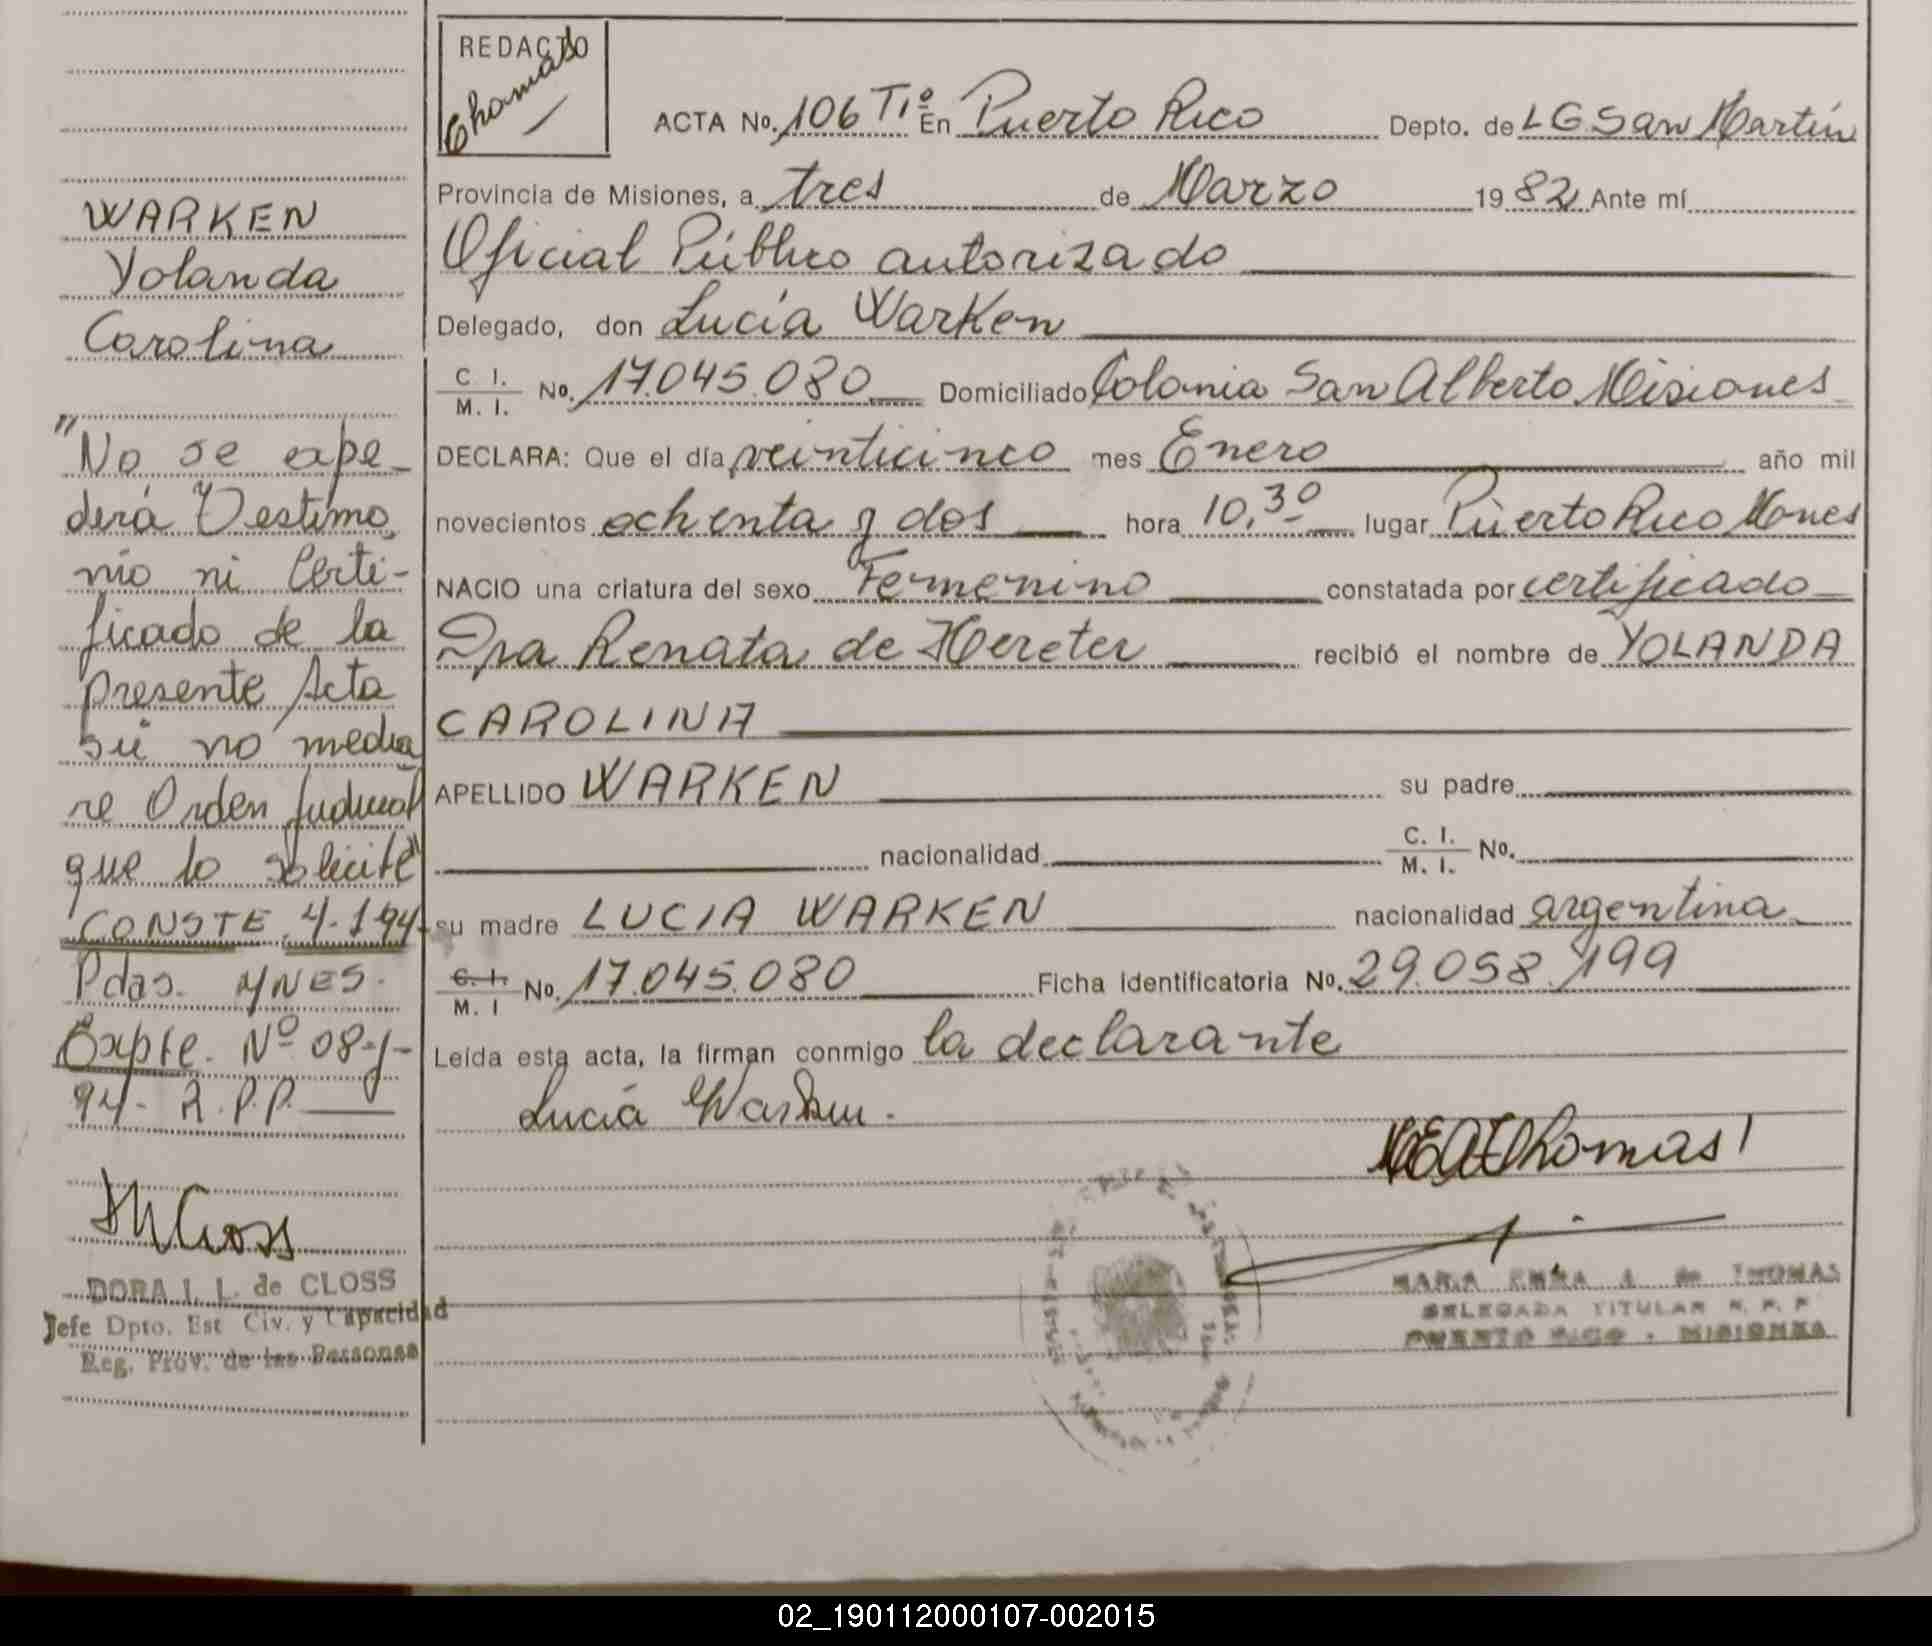 REDACTO
Thomas
ACTA No. 106 Tº1º En Puerto Rico Depto. de LG San Martín
Provincia de Misiones, a tres de Marzo 1982 Ante mí
Oficial Público autorizado
Delegado, don Lucía Warken
C. I. M. I. No. 17.045.080 Domiciliado Colonia San Alberto Misiones
DECLARA: Que el día veinticinco mes Enero año mil
novecientos ochenta y dos hora 10,30 lugar Puerto Rico Mones
NACIO una criatura del sexo Femenino constatada por certificado
Dra Renata de Hereter recibió el nombre de YOLANDA
CAROLINA
APELLIDO WARKEN su padre
nacionalidad C. I. M. I. No.
su madre LUCIA WARKEN nacionalidad argentina
C. I. M. I No. 17.045.080 Ficha identificatoria No. 29.058.199
Leída esta acta, la firman conmigo la declarante
Lucía Warken.
Thomas
MARIA EMMA A. de THOMAS
DELEGADA TITULAR R. P. P.
PUERTO RICO - MISIONES
WARKEN
Yolanda
Carolina
"No se expe-
derá Testimo
nio ni Certi-
ficado de la
presente Acta
si no media
re Orden Judicial
que lo solicite"
CONSTE 4-1-94-
Pdas. YNES.
Expte. Nº 08-J-
94- R.P.P.
DORA I. L. de CLOSS
Jefe Dpto. Est Civ. y Capacidad
Reg. Prov. de las Personas
02_190112000107-002015